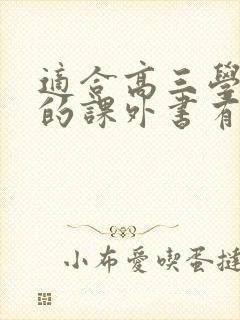 適合高三學
的課外書有
小布愛喫蛋撻